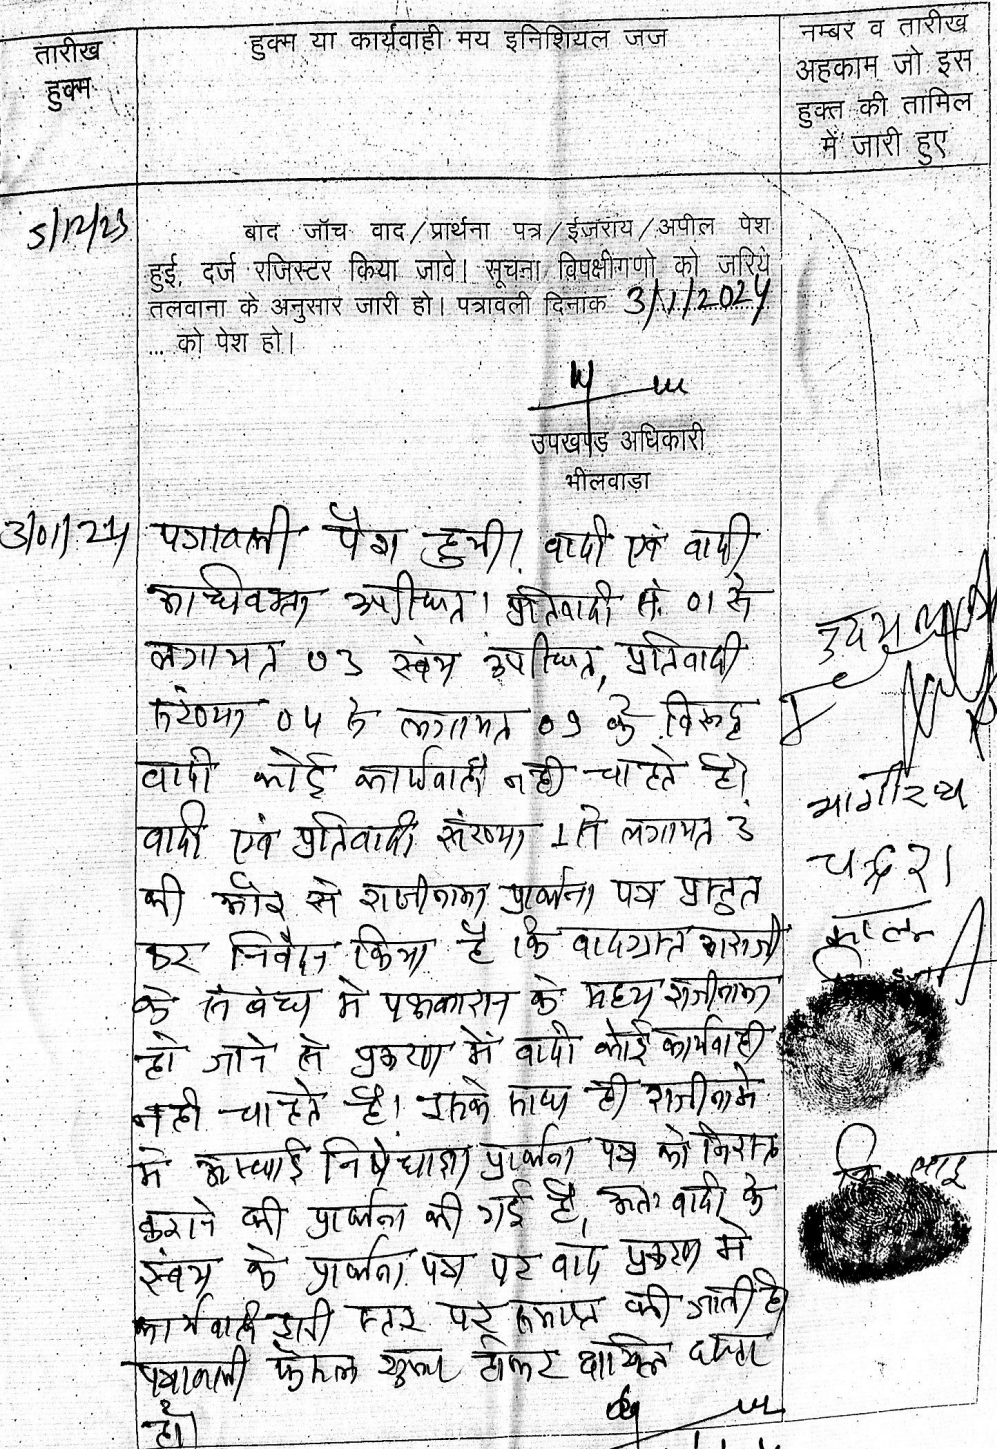 तारीख
हुक्म
हुक्म या कार्यवाही मय इनिशियल जज
नम्बर व तारीख
अहकाम जो इस
हुक्त की तामिल
में जारी हुए
5/12/23
बाद जॉच वाद/प्रार्थना पत्र/ईजराय/अपील पेश
हुई, दर्ज रजिस्टर किया जावे। सूचना विपक्षीगणो को जरिये
तलवाना के अनुसार जारी हो। पत्रावली दिनाक 3/1/2024
... को पेश हो।
उपखण्ड अधिकारी
भीलवाडा
3/01/24
पत्रावली पेश हुयी। वादी एवं वादी
अधिवक्ता उपस्थित। प्रतिवादी सं. 01 से
लगायत 03 स्वंय उपस्थित, प्रतिवादी
संख्या 04 से लगायत 09 के विरूद्ध
वादी कोई कार्यवाही नही चाहते है।
वादी एवं प्रतिवादी संख्या 1 से लगायत 3
की और से राजीनामा प्रार्थना पत्र प्रस्तुत
कर निवेदन किया है कि वादग्रस्त आराजी
के संबंध मे पक्षकारान के मध्य राजीनामा
हो जाने से प्रकरण में वादी कोई कार्यवाही
नही चाहते है। इसके साथ ही राजीनामे
मे अस्थाई निषेधाज्ञा प्रार्थना पत्र को निरस्त
कराने की प्रार्थना की गई है, अतः वादी के
स्वंय के प्रार्थना पत्र पर वाद प्रकरण मे
कार्यवाही इसी स्तर पर समाप्त की जाती है।
पत्रावली फैसल शुमार होकर दाखिल दफ्तर
हो।
भागीरथ
चन्द्र